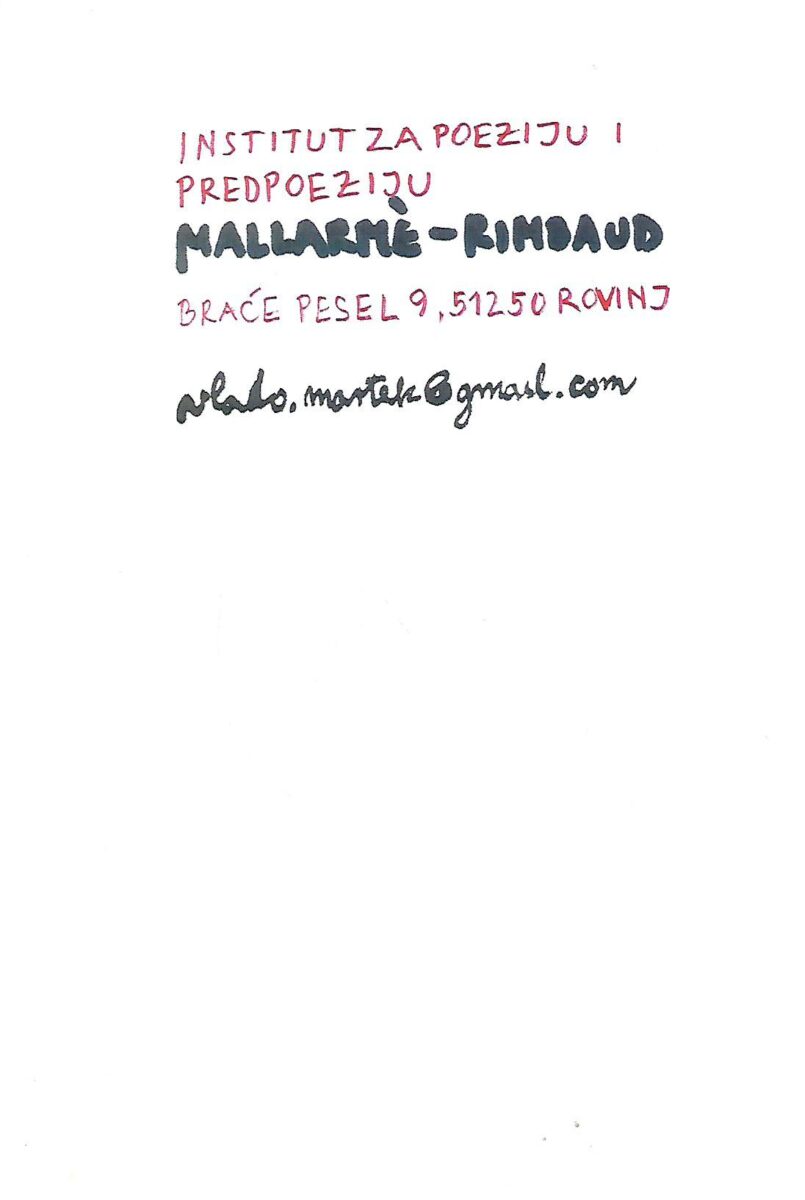 INSTITUT ZA POEZIJU I
PREDPOEZIJU
MALLARMÈ-RIMBAUD
BRAĆE PESEL 9, 51250 ROVINJ
vlado.martek@gmail.com